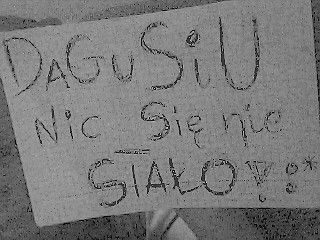 DAGUSiU
Nic Się nic
STAŁO! :*